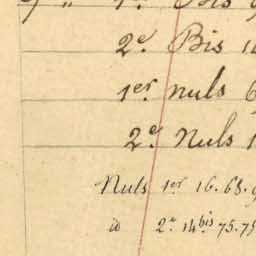 1er Bis
2e Bis 1
1er nuls 6
2e Nuls 1
Nuls 1er 16.65.9
id 2e 14bis 75.75